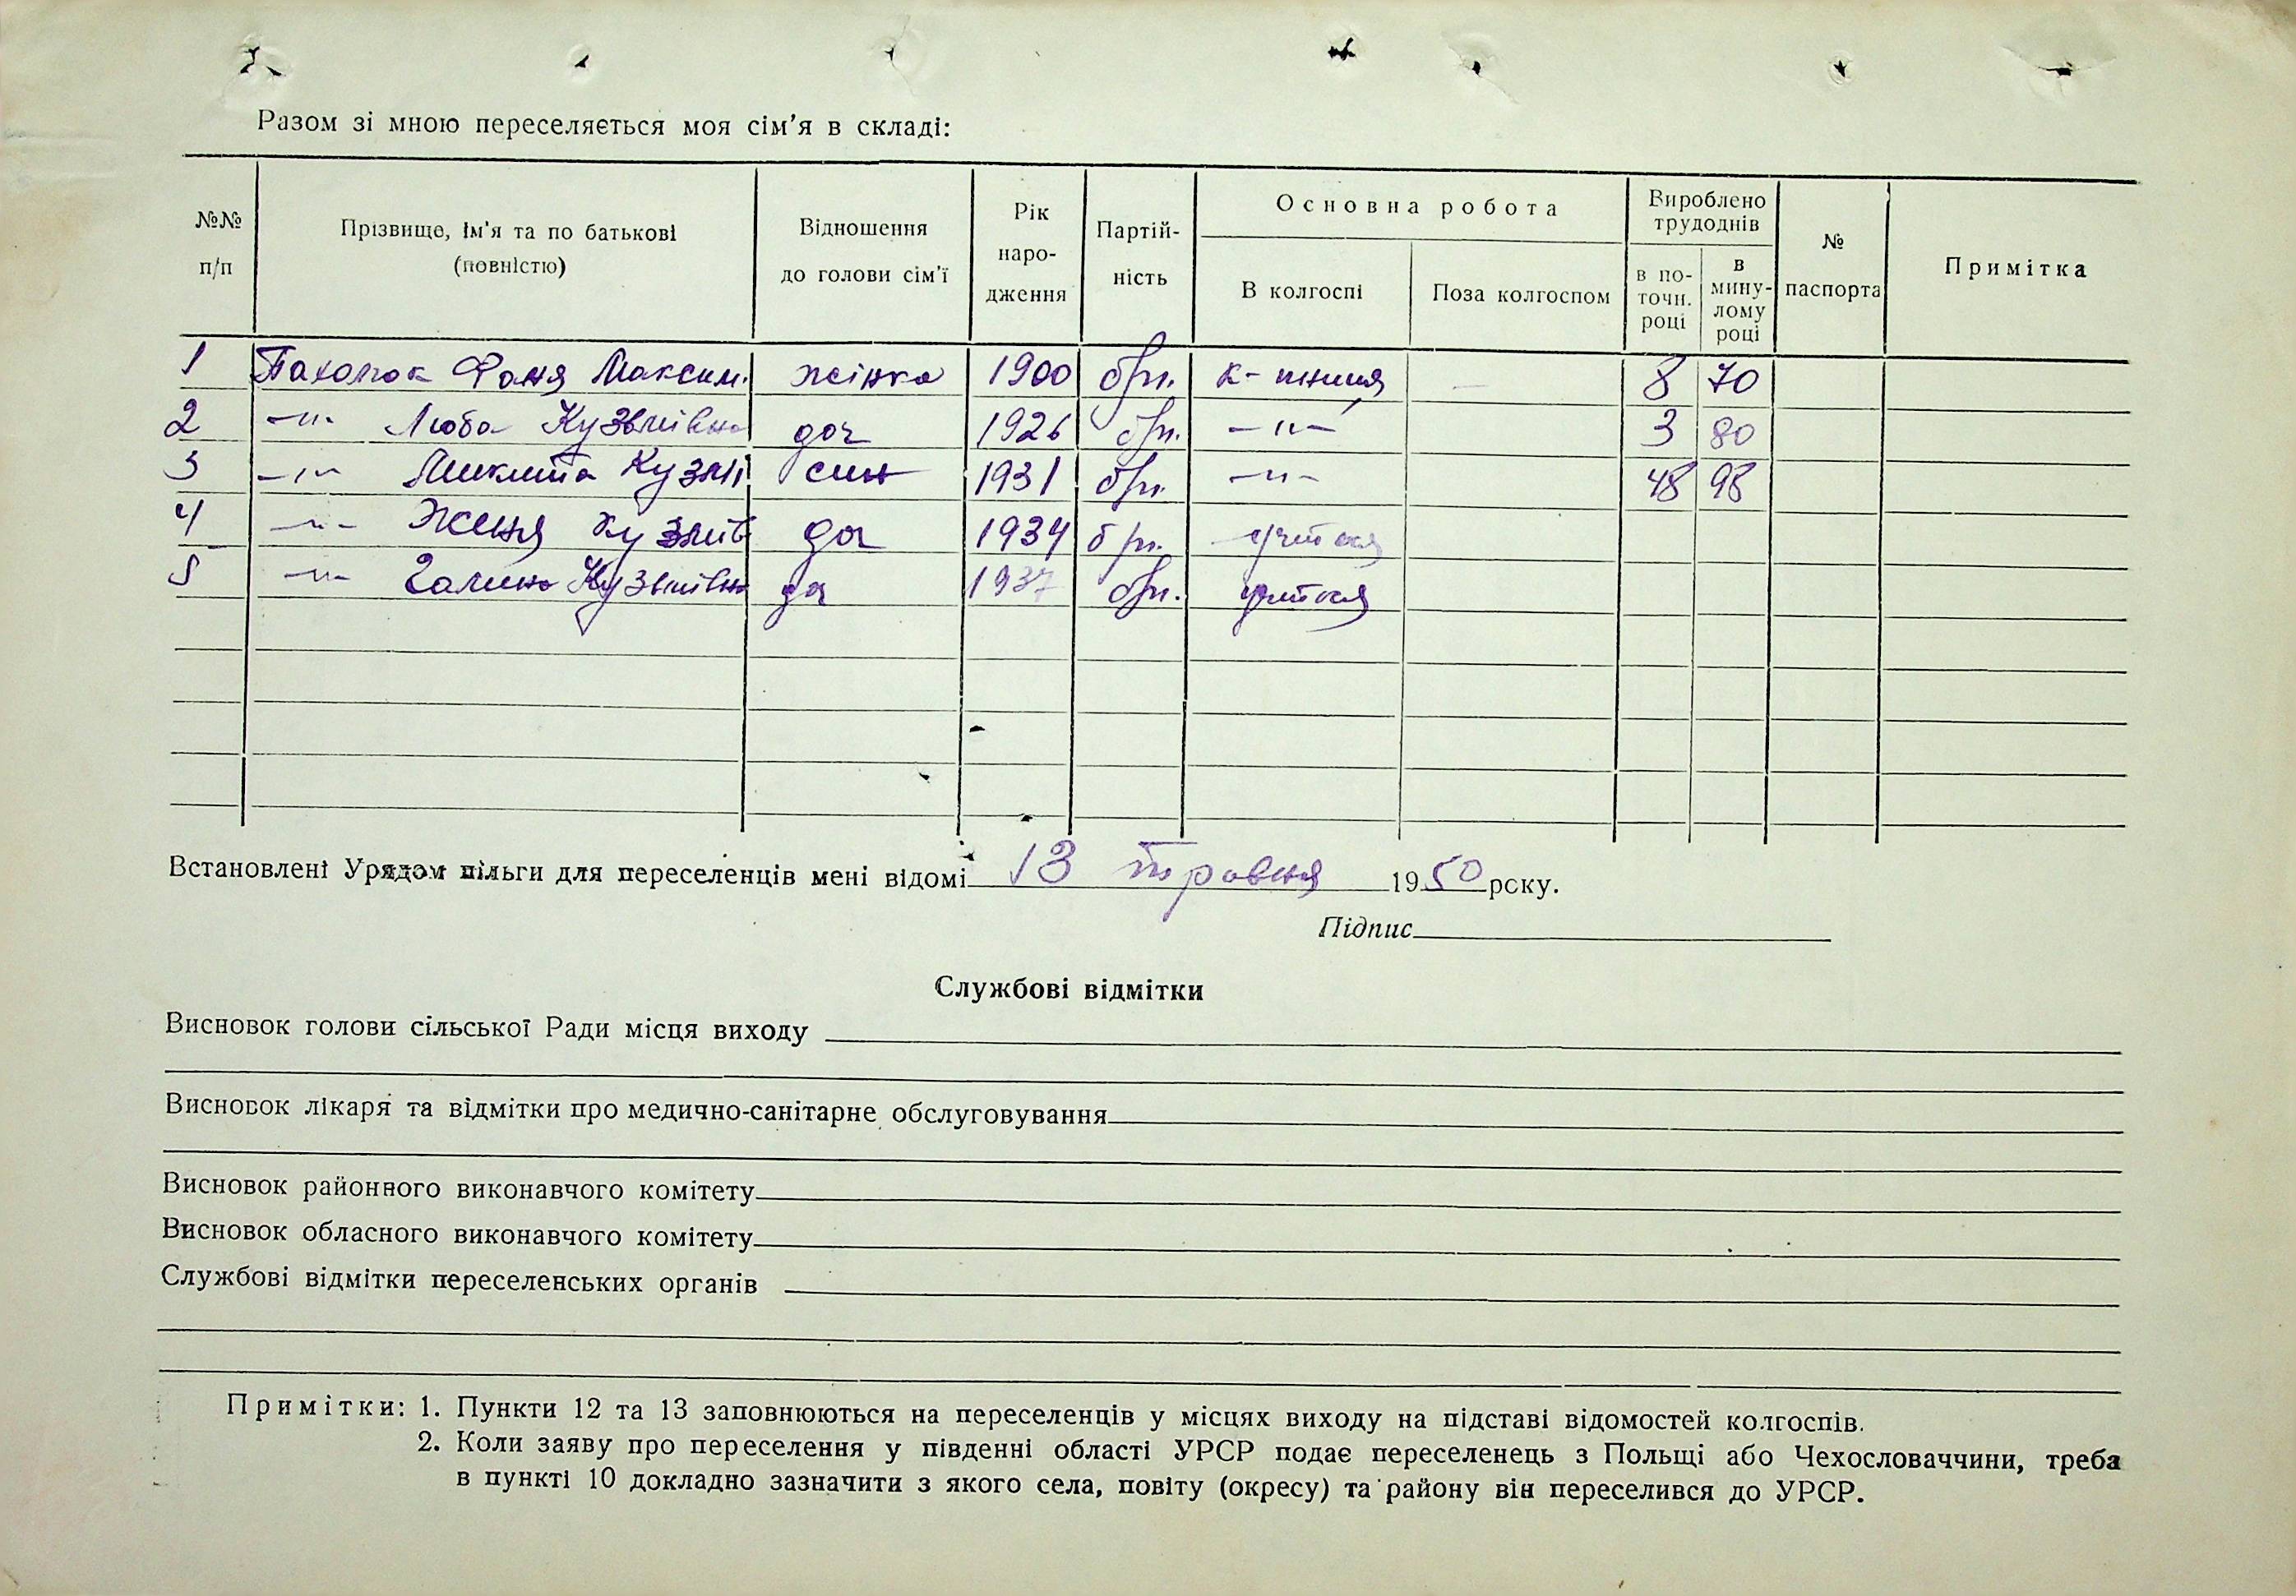 Разом зі мною переселяється моя сім'я в складі:
№№ п/п
Прізвище, ім'я та по батькові (повністю)
Відношення до голови сім'ї
Рік народження
Партійність
Основна робота
В колгоспі
Поза колгоспом
Вироблено трудоднів
в поточн. році
в минулому році
№ паспорта
Примітка
1 Пахолок Фаня Максим. жінка 1900 б/п. к-пниця — 8 70
2 -"- Люба Кузьмівна доч 1926 б/п. -"- 3 80
3 -"- Микита Кузмі син 1931 б/п. -"- 48 98
4 -"- Женя Кузмів доч 1934 б/п.
5 -"- Галина Кузьмівна доч 1937 б/п.
Встановлені Урядом пільги для переселенців мені відомі 13 травня 1950 року.
Підпис
Службові відмітки
Висновок голови сільської Ради місця виходу
Висновок лікаря та відмітки про медично-санітарне обслуговування
Висновок районного виконавчого комітету
Висновок обласного виконавчого комітету
Службові відмітки переселенських органів
Примітки: 1. Пункти 12 та 13 заповнюються на переселенців у місцях виходу на підставі відомостей колгоспів.
2. Коли заяву про переселення у південні області УРСР подає переселенець з Польщі або Чехословаччини, треба
в пункті 10 докладно зазначити з якого села, повіту (окресу) та району він переселився до УРСР.